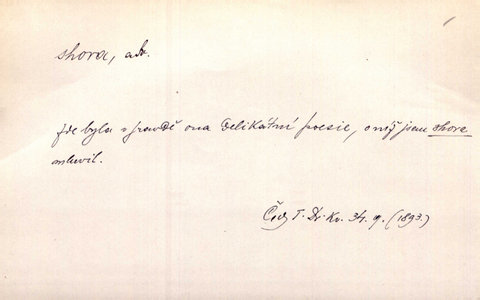 shora, adv.
Zde byla v pravdě ona delikátní poesie, o níž jsem shora
mluvil.
Čech T. Dr. Kv. 34. 9. (1893.)